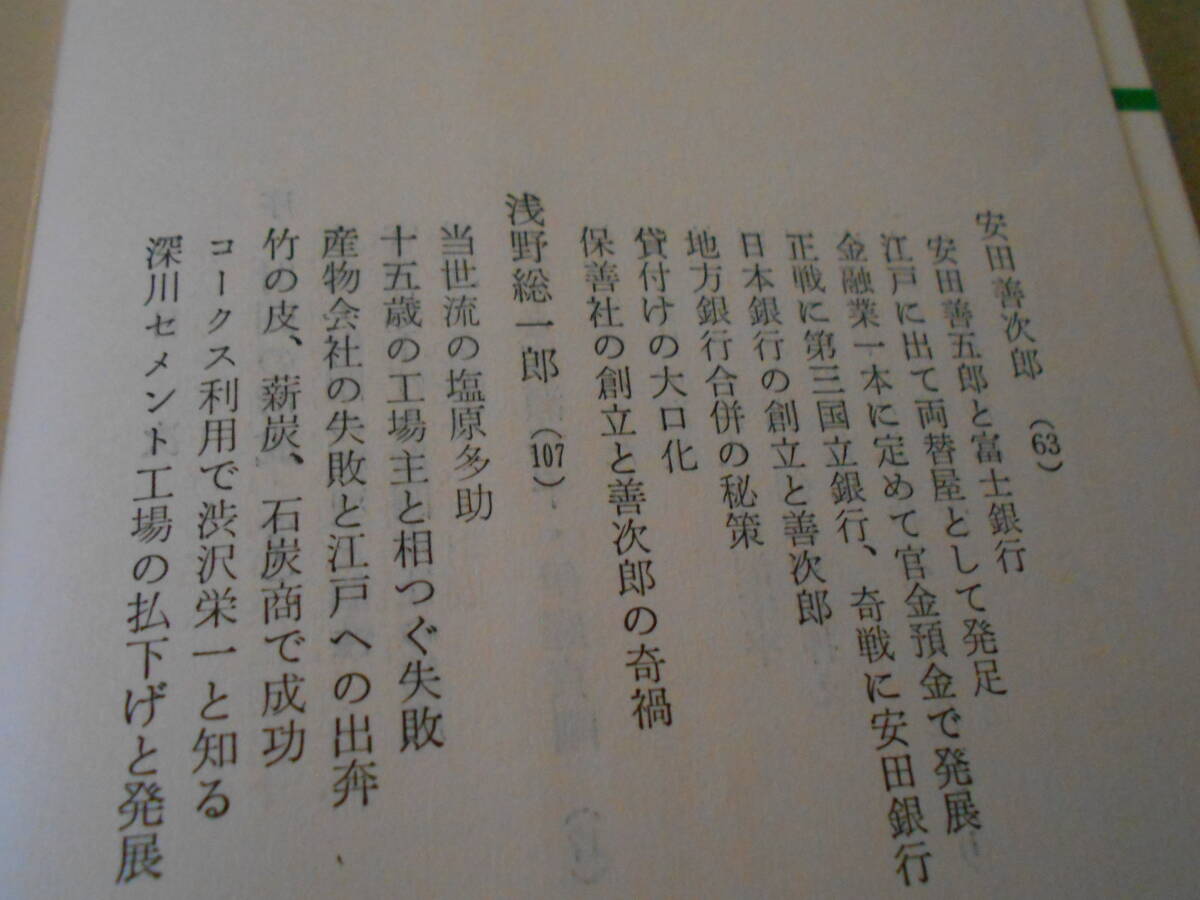 安田善次郎 (63)
安田善五郎と富士銀行
江戸に出て両替屋として発足
金融業一本に定めて官金預金で発展
正戦に第三国立銀行、奇戦に安田銀行
日本銀行の創立と善次郎
地方銀行合併の秘策
貸付けの大口化
保善社の創立と善次郎の奇禍
浅野総一郎 (107)
当世流の塩原多助
十五歳の工場主と相つぐ失敗
産物会社の失敗と江戸への出奔
竹の皮、薪炭、石炭商で成功
コークス利用で渋沢栄一と知る
深川セメント工場の払下げと発展